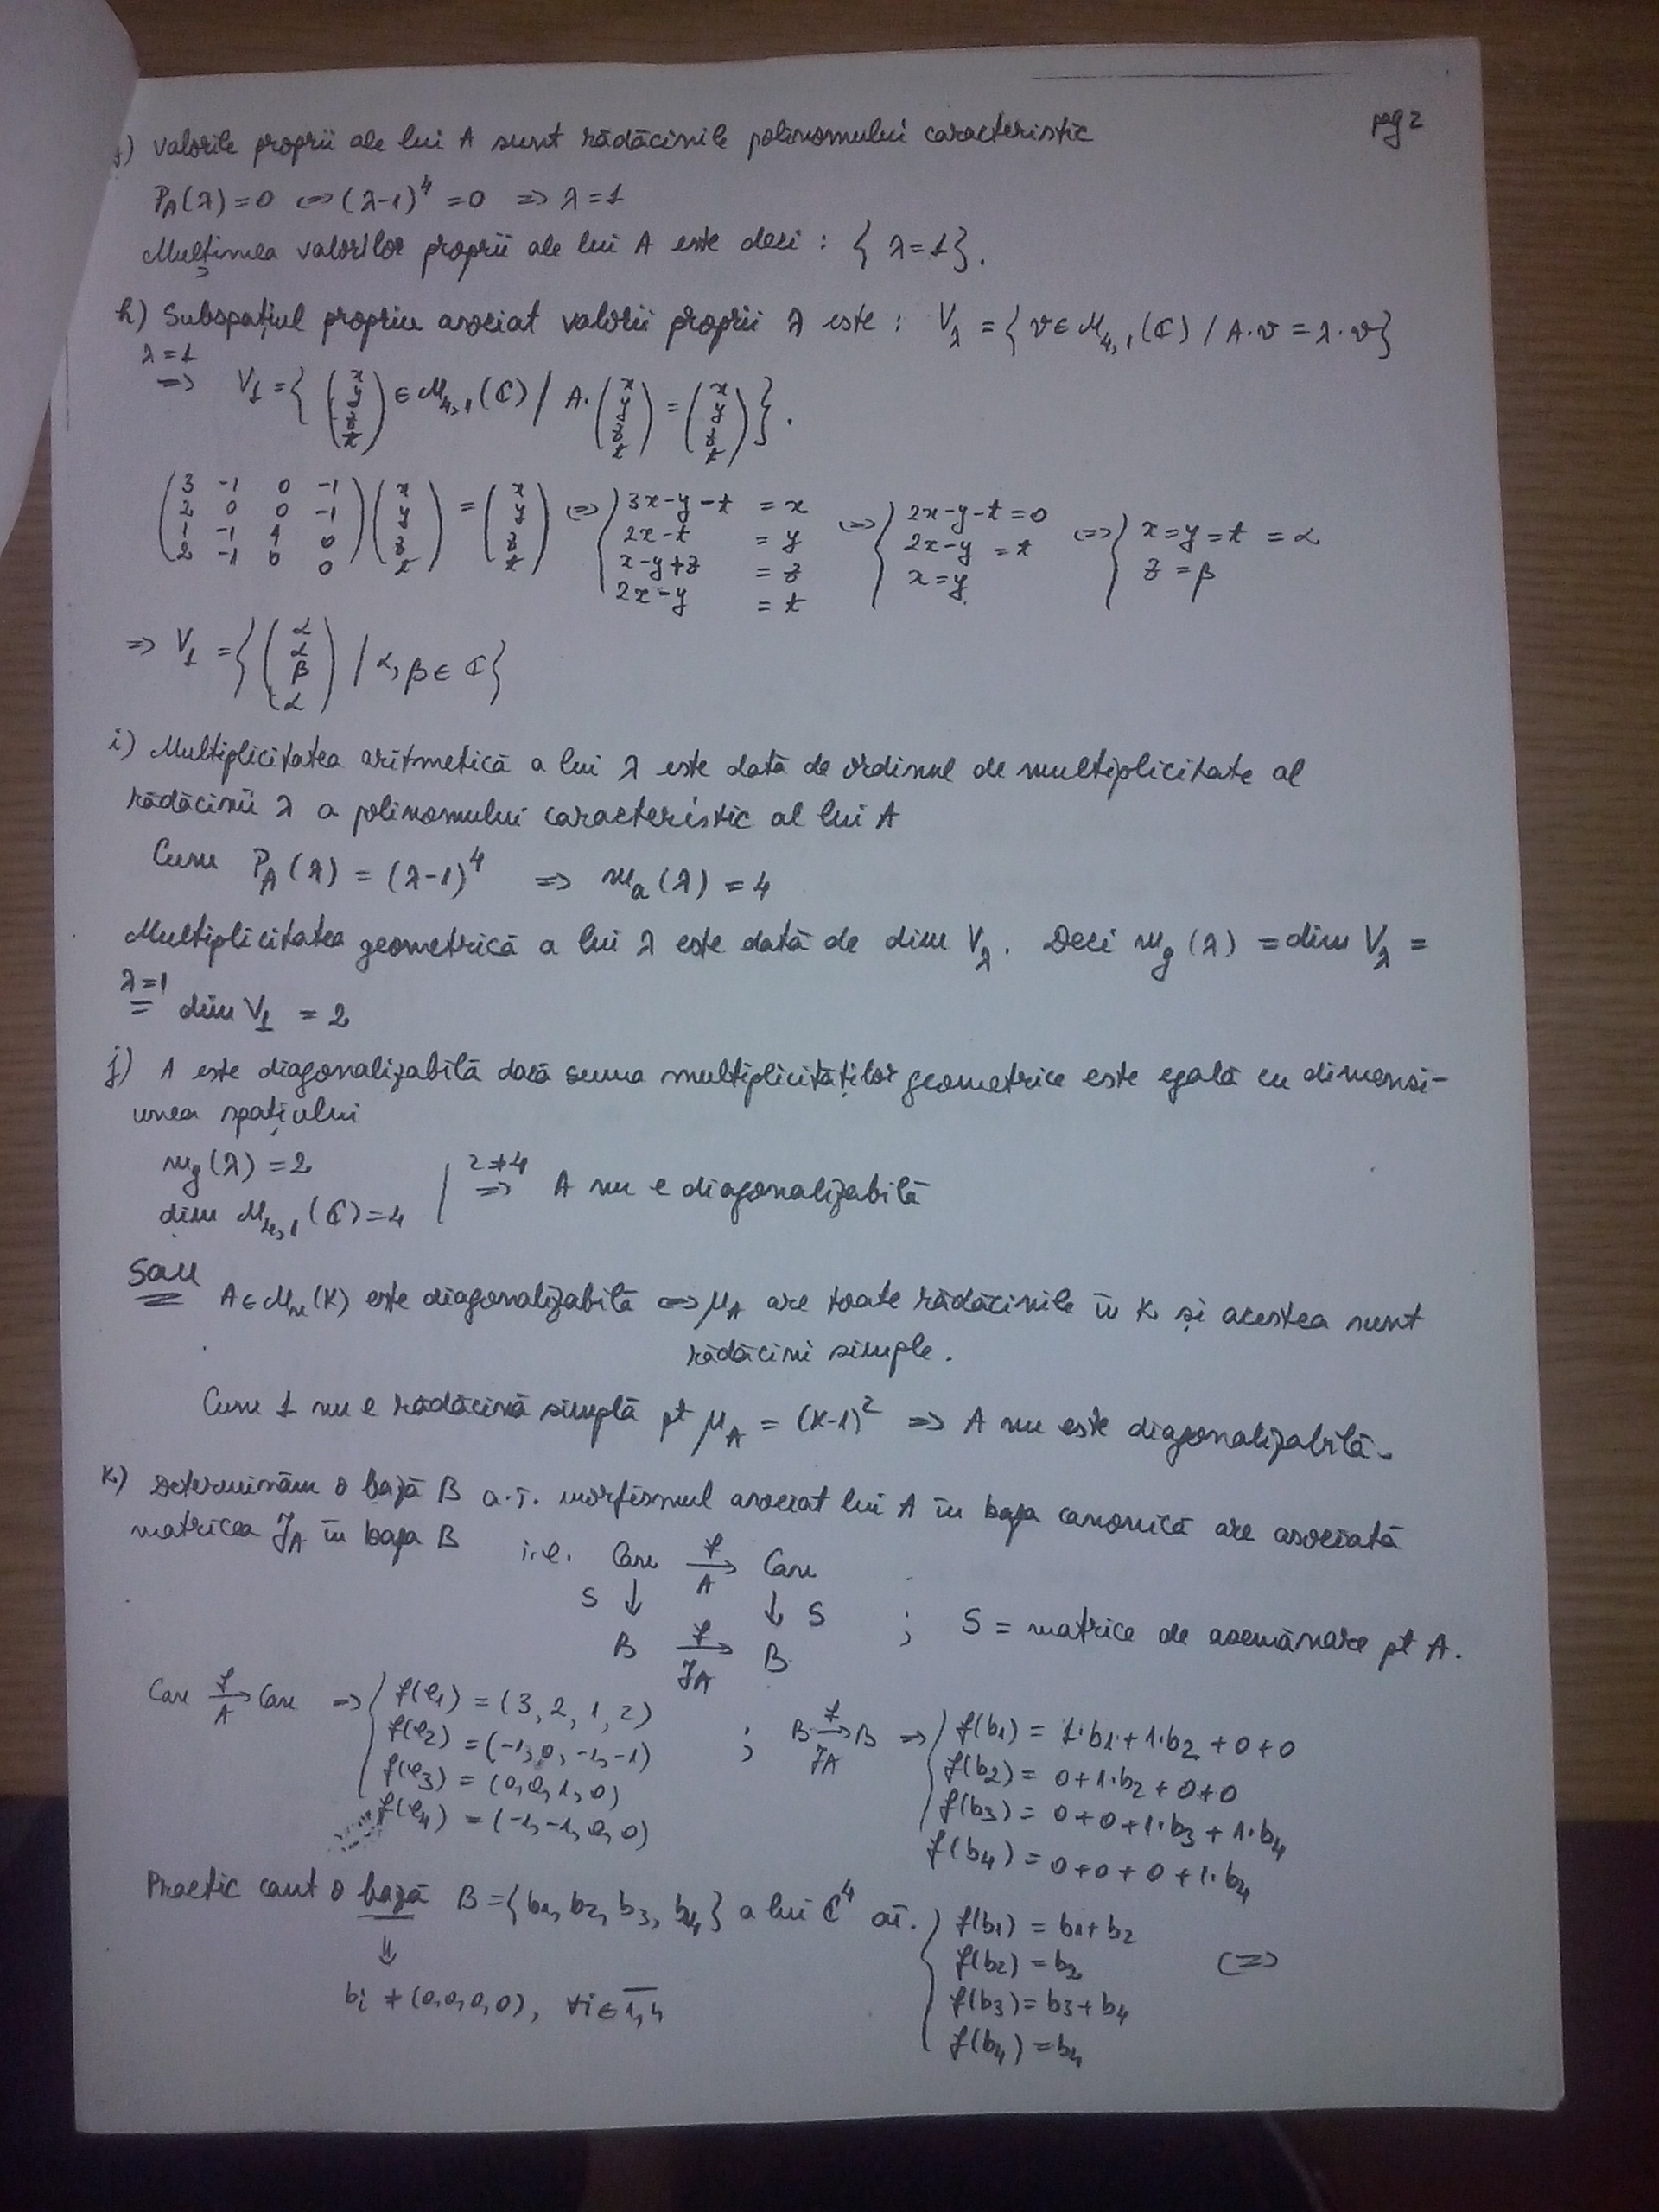 pag 2
g) Valorile proprii ale lui A sunt rădăcinile polinomului caracteristic
P_A(λ)=0 ⇔ (λ-1)^4 =0 ⇒ λ=1
Mulțimea valorilor proprii ale lui A este deci : { λ=1}.
h) Subspațiul propriu asociat valorii proprii λ este : V_λ = { v∈ M_{4,1}(ℂ) / A·v = λ·v}
λ=1 ⇒ V_1 ={ (x y z t) ∈ M_{4,1}(ℂ) / A· (x y z t) = (x y z t) }.
(3 -1 0 -1) (x) = (x) ⇔ { 3x-y-t = x ⇔ { 2x-y-t=0 ⇔ { x=y=t = α
(2 0 0 -1) (y) (y) 2x-t = y 2x-y = t z = β
(1 -1 1 0) (z) (z) x-y+z = z x=y
(2 -1 0 0) (t) (t) 2x-y = t
⇒ V_1 = { (α α β α) / α, β ∈ ℂ}
i) Multiplicitatea aritmetică a lui λ este dată de ordinul de multiplicitate al
rădăcinii λ a polinomului caracteristic al lui A
Cum P_A(λ) = (λ-1)^4 ⇒ m_a(λ) = 4
Multiplicitatea geometrică a lui λ este dată de dim V_λ. Deci m_g(λ) = dim V_λ =
λ=1
= dim V_1 = 2
j) A este diagonalizabilă dacă suma multiplicităților geometrice este egală cu dimensi-
unea spațiului
m_g(λ) = 2
dim M_{4,1}(ℂ)=4 | 2≠4 ⇒ A nu e diagonalizabilă
Sau
A∈M_n(K) este diagonalizabilă ⇔ μ_A are toate rădăcinile în K și acestea sunt
rădăcini simple.
Cum 1 nu e rădăcină simplă pt μ_A = (X-1)^2 ⇒ A nu este diagonalizabilă.
k) Determinăm o bază B a.î. morfismul asociat lui A în baza canonică are asociată
matricea J_A în baza B i.e. Can f→ A Can
S ↓ ↓ S ; S = matrice de asemănare pt A.
B f→ J_A B
Can f→ A Can ⇒ { f(e1) = (3, 2, 1, 2) ; B f→ J_A B ⇒ { f(b1) = 1·b1 + 1·b2 + 0 + 0
f(e2) = (-1, 0, -1, -1) f(b2) = 0 + 1·b2 + 0 + 0
f(e3) = (0, 0, 1, 0) f(b3) = 0 + 0 + 1·b3 + 1·b4
f(e4) = (-1, -1, 0, 0) f(b4) = 0 + 0 + 0 + 1·b4
Practic caut o bază B = {b1, b2, b3, b4} a lui ℂ^4 aî. { f(b1) = b1+b2
⇓ f(b2) = b2 (=)
bi ≠ (0,0,0,0), ∀i∈1,4 f(b3) = b3+b4
f(b4) = b4